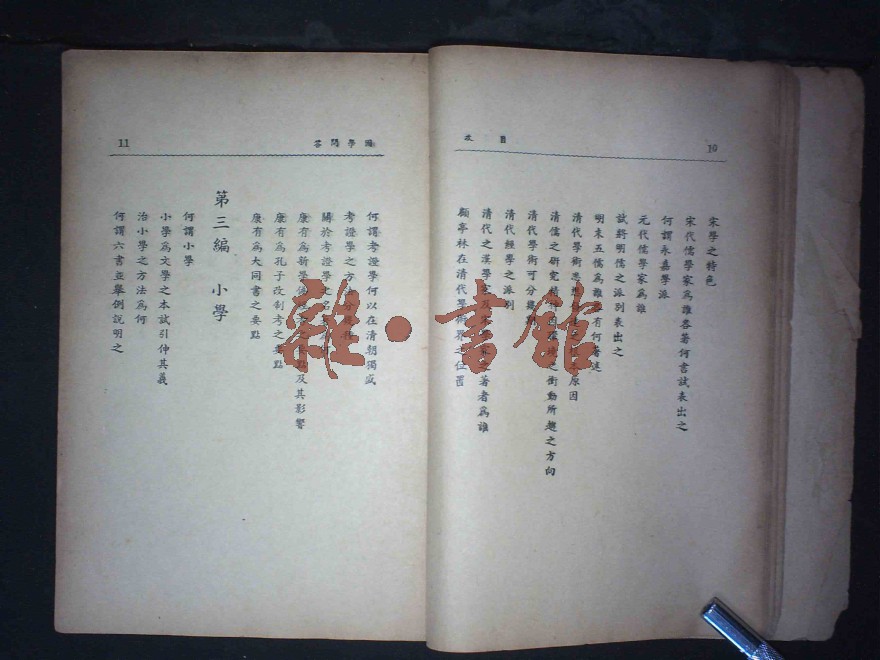 目次
10
宋學之特色
宋代儒學家為誰各著何書試表出之
何謂永嘉學派
元代儒學家為誰
試將明儒之派別表出之
明末五儒為誰有何著述
清代學術思原因
清儒之研究精神之衝動所趨之方向
清代學術可分幾
清代經學之派別
清代之漢學及之著者為誰
顧亭林在清代學術界之位置
國學問答
11
何謂考證學何以在清朝獨盛
考證學之方
關於考證學之名
康有為新學偽點及其影響
康有為孔子改制考之要點
康有為大同書之要點
第三編 小學
何謂小學
小學為文學之本試引伸其義
治小學之方法為何
何謂六書並舉例說明之
雜·書館